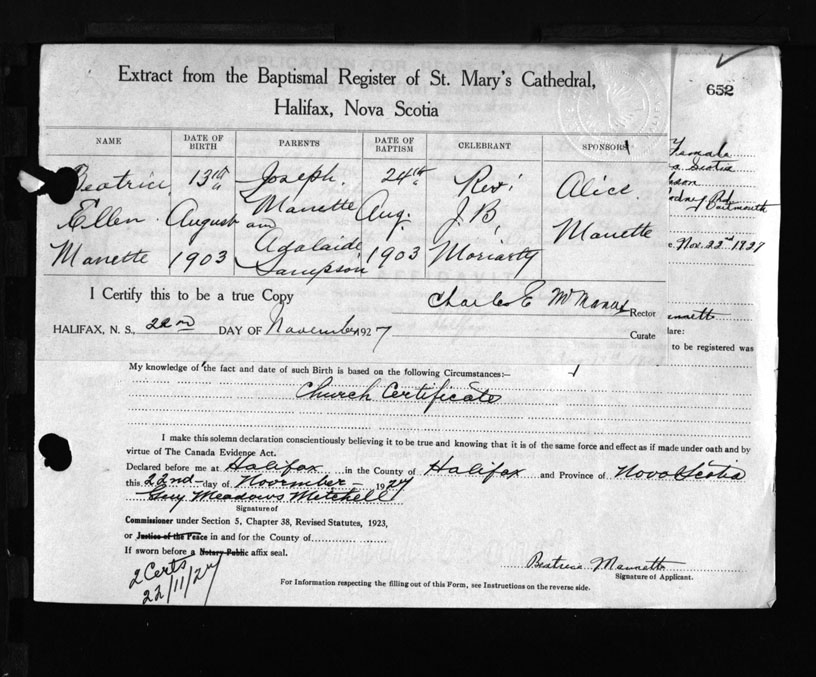 Extract from the Baptismal Register of St. Mary's Cathedral,
Halifax, Nova Scotia
652
NAME DATE OF BIRTH PARENTS DATE OF BAPTISM CELEBRANT SPONSORS
Beatrice 13th Joseph 24th Rev. Alice
Ellen August Manette and Aug. J. B. Manette
Manette 1903 Adalaide Sampson 1903 Moriarty
Female
Scotia
Rd
Dartmouth
Nov. 22nd 1927
I Certify this to be a true Copy
Charles E McManus Rector
HALIFAX, N. S., 22nd DAY OF November 1927 Curate
to be registered was
My knowledge of the fact and date of such Birth is based on the following Circumstances:—
Church Certificate
I make this solemn declaration conscientiously believing it to be true and knowing that it is of the same force and effect as if made under oath and by
virtue of The Canada Evidence Act.
Declared before me at Halifax in the County of Halifax and Province of Nova Scotia
this 22nd day of November 1927
Guy Meadows Mitchell
Signature of
Commissioner under Section 5, Chapter 38, Revised Statutes, 1923,
or Justice of the Peace in and for the County of
If sworn before a Notary Public affix seal.
2 Certs
22/11/27
Beatrice Mannette
Signature of Applicant.
For Information respecting the filling out of this Form, see Instructions on the reverse side.